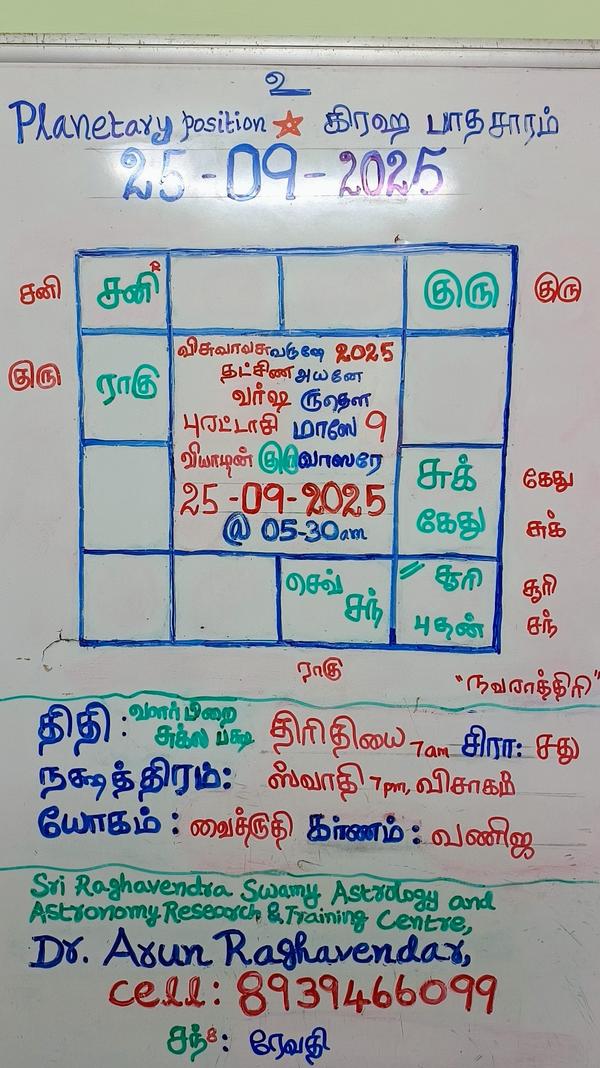 உ
Planetary position கிரஹ பாதசாரம்
25-09-2025
சனி சனி R குரு குரு
விசுவாவசுவருஷே 2025
தட்சிணஅயனே
குரு ராகு
வர்ஷ ருதௌ
புரட்டாசி மாஸே 9
வியாழன் குருவாஸரே
25-09-2025
@ 05-30am
சுக் கேது
கேது சுக்
செவ் சூரி சூரி
சந் புதன் சந்
ராகு
"நவராத்திரி"
திதி : வளர்பிறை சுக்ல பக்ஷ திரிதியை 7am சிரா: சது
நக்ஷத்திரம்: ஸ்வாதி 7pm, விசாகம்
யோகம் : வைத்ருதி கர்ணம் : வணிஜ
Sri Raghavendra Swamy Astrology and
Astronomy Research & Training Centre,
Dr. Arun Raghavendar,
cell: 8939466099
சந்8: ரேவதி